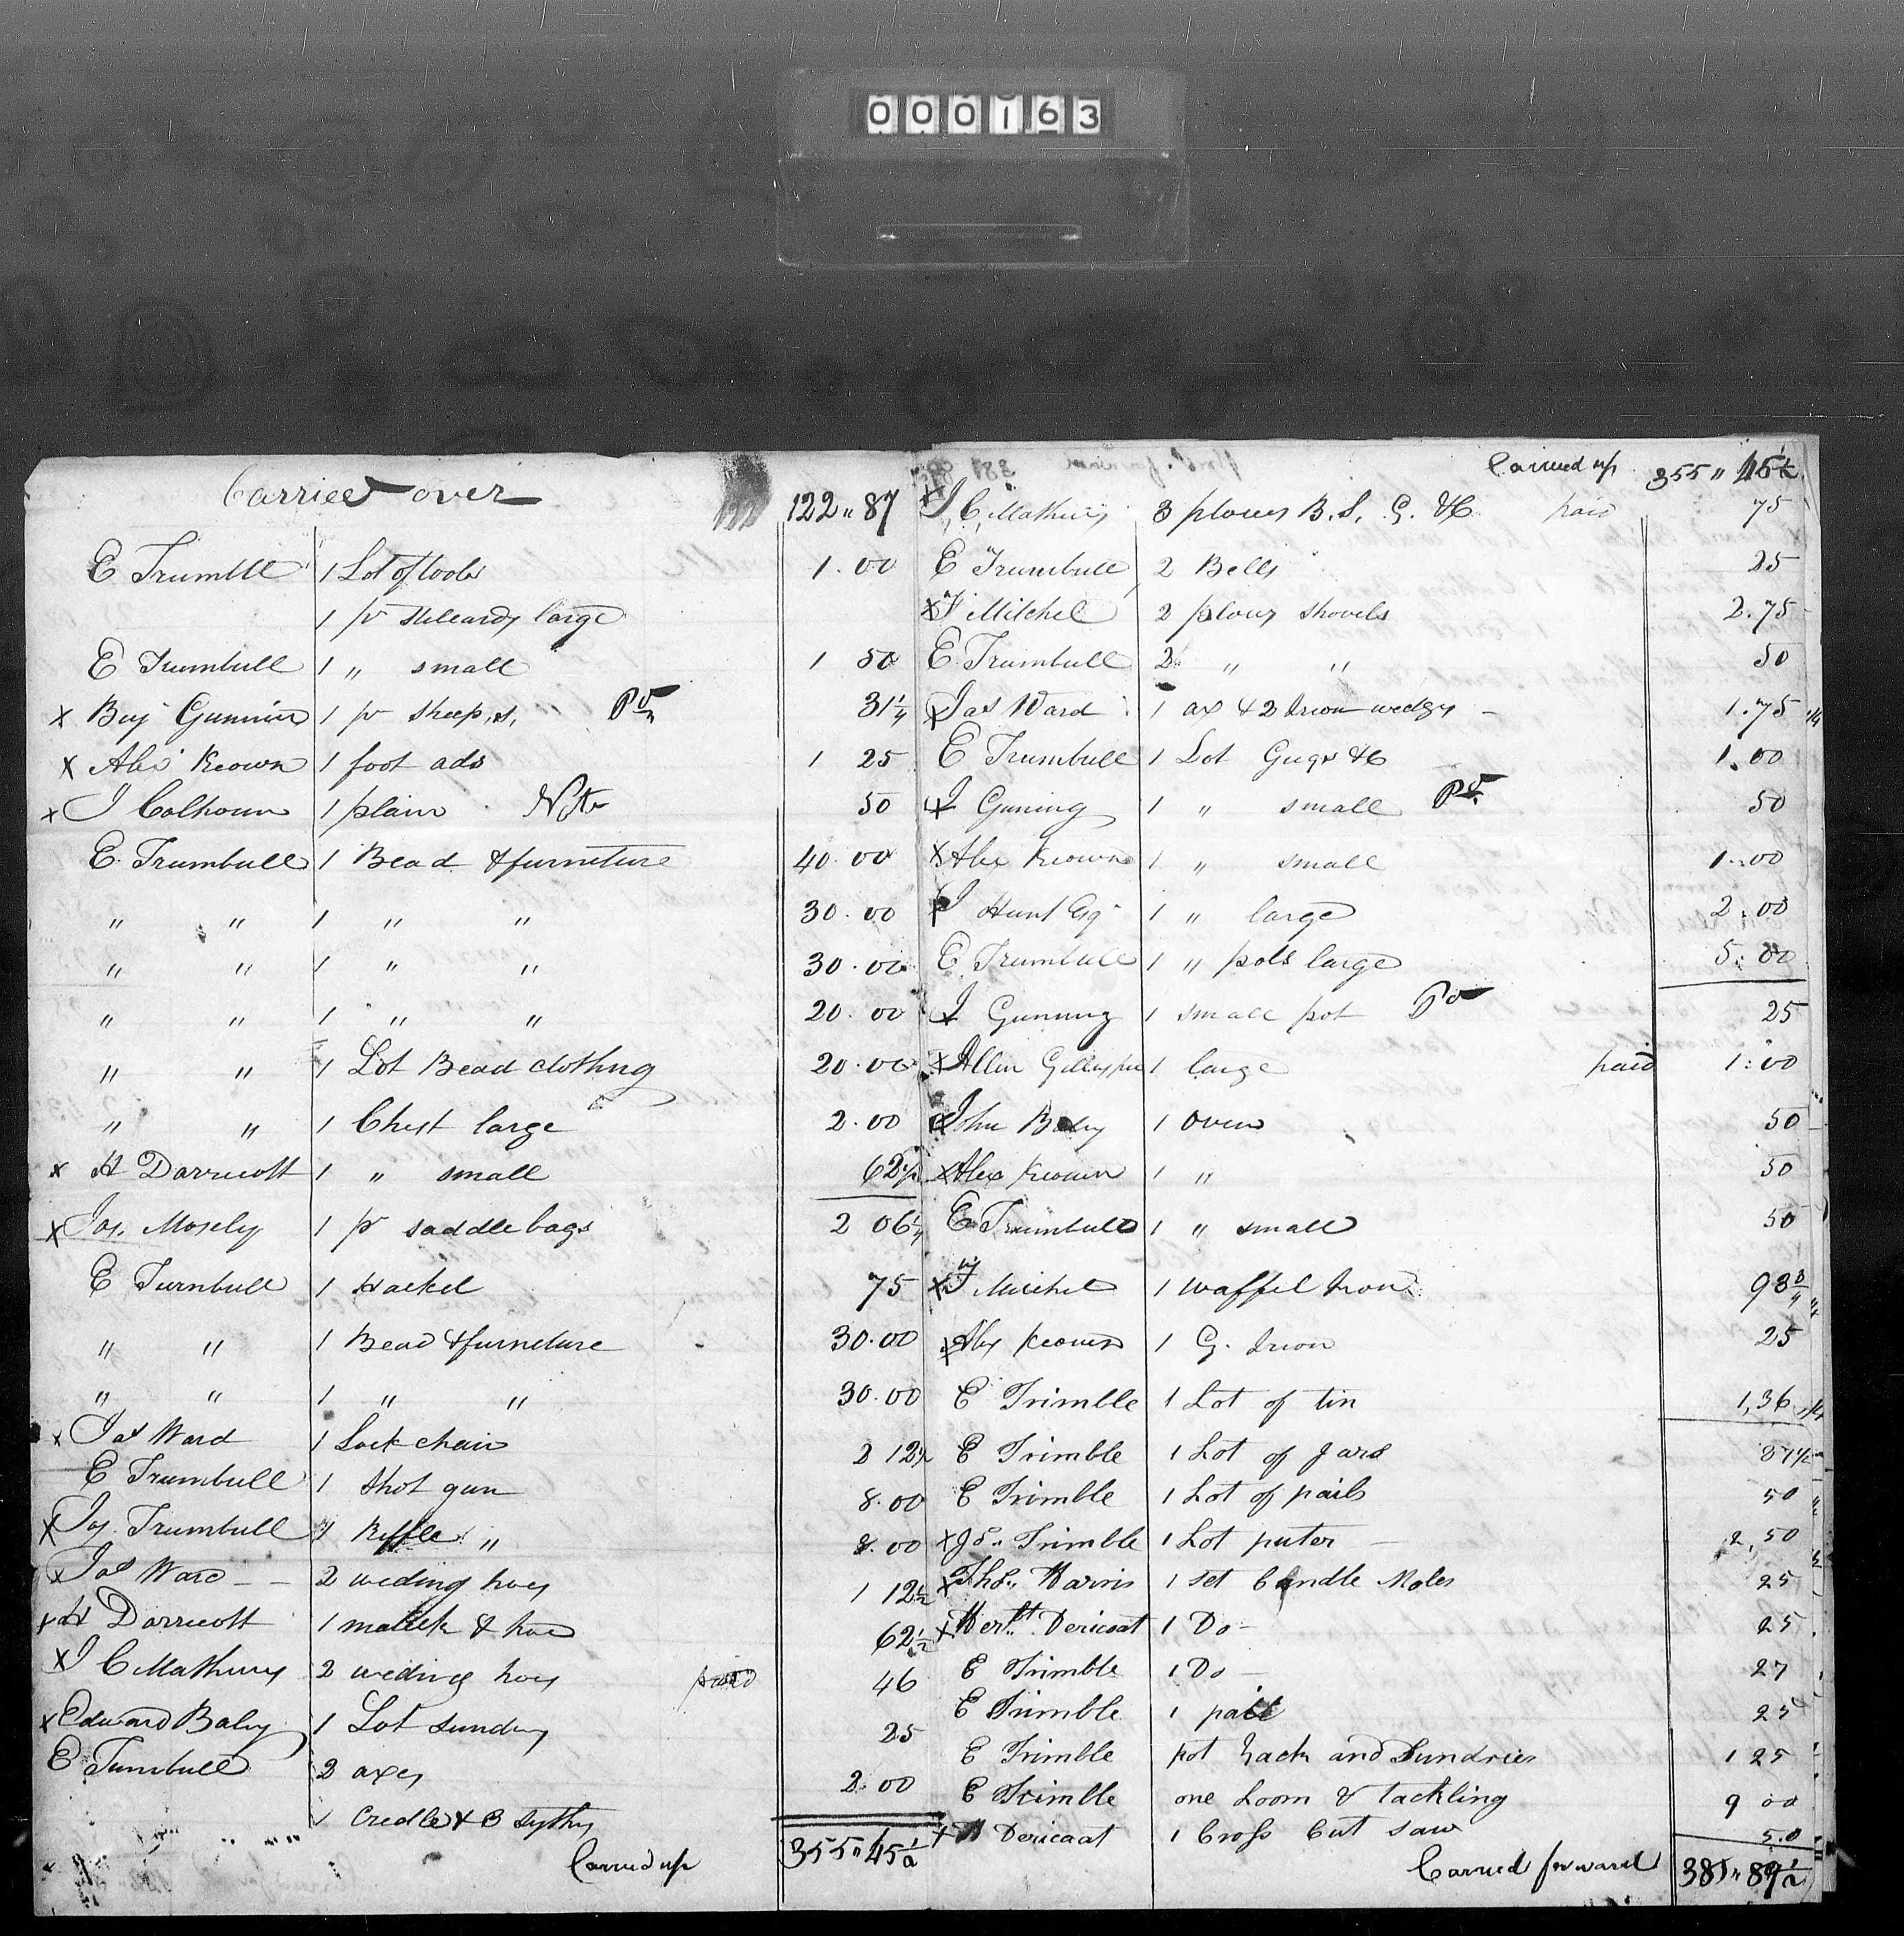 000163
Carried over 122 " 87
E Trumbll 1 Lot of tools 1.00
1 pr stileards large
E Trumbull 1 " small 1 50
x Benj Gunnin 1 pr sheep, s, Pd 31 1/4
x Alex Keown 1 foot ads 1 25
x J Calhoun 1 plain Note 50
E. Trumbull 1 Bead & furneture 40.00
" " 1 " " 30.00
" " 1 " " 30.00
" " 1 " " 20.00
" " 1 Lot Bead clothing 20.00
" " 1 Chest large 2.00
x H Darricott 1 " small 62 1/2
x Jas. Mosely 1 pr saddlebags 2 06 1/4
E Turnbull 1 Hackel 75
" " 1 Bead & furneture 30.00
" " 1 " " 30.00
x Jas Ward 1 Lock chain 2 12 1/2
E Trumbull 1 Shot gun 8.00
x Jas. Trumbull 1 Riffle " 8.00
x Jas Ward 2 weding hoes 1 12 1/2
x H Darricott 1 mattick & hoe 62 1/2
x J C Mathews 2 weding hoes paid 46
x Edward Baley 1 Lot sundry 25
E Turnbull 2 axes 2.00
1 Credle & 3 sythes
Carried up 355 " 45 1/2
Carried up 355 " 45 1/2
x J C Mathews 3 plows B. S. G. &C paid 75
E Trumbull 2 Bells 25
x Mitchel 2 plows shovels 2.75
E Trumbull 2 " " 50
x Jas Ward 1 ax & 2 Iron wedges 1.75
E Trumbull 1 Lot Gugs &C 1.00
x J Guning 1 " small Pd 50
x Alex Keown 1 " small 1.00
x J Hunt Esq 1 " large 2.00
E Trumbull 1 " pots large 5.00
x J Gunning 1 small pot Pd 25
x Allen Gillespie 1 large paid 1.00
x John Baley 1 oven 50
x Alex Keown 1 " 50
E Trumbull 1 " small 50
x Mitchel 1 waffel Iron 93 3/4
x Alex Keown 1 G. Iron 25
E Trimble 1 Lot of tin 1,36
E Trimble 1 Lot of Jars 87 1/2
E Trimble 1 Lot of pails 50
x Js. Trimble 1 Lot puter 2,50
x Thos. Harris 1 set Candle Moles 25
x Herbt. Dericoat 1 Do 25
E Trimble 1 Do 27
E Trimble 1 pail 25
E Trimble pot hack and Sundries 1 25
E Trimble one Loom & tackling 9 00
x H Dericoat 1 Cross Cut saw 50
Carried forward 381 " 89 1/2